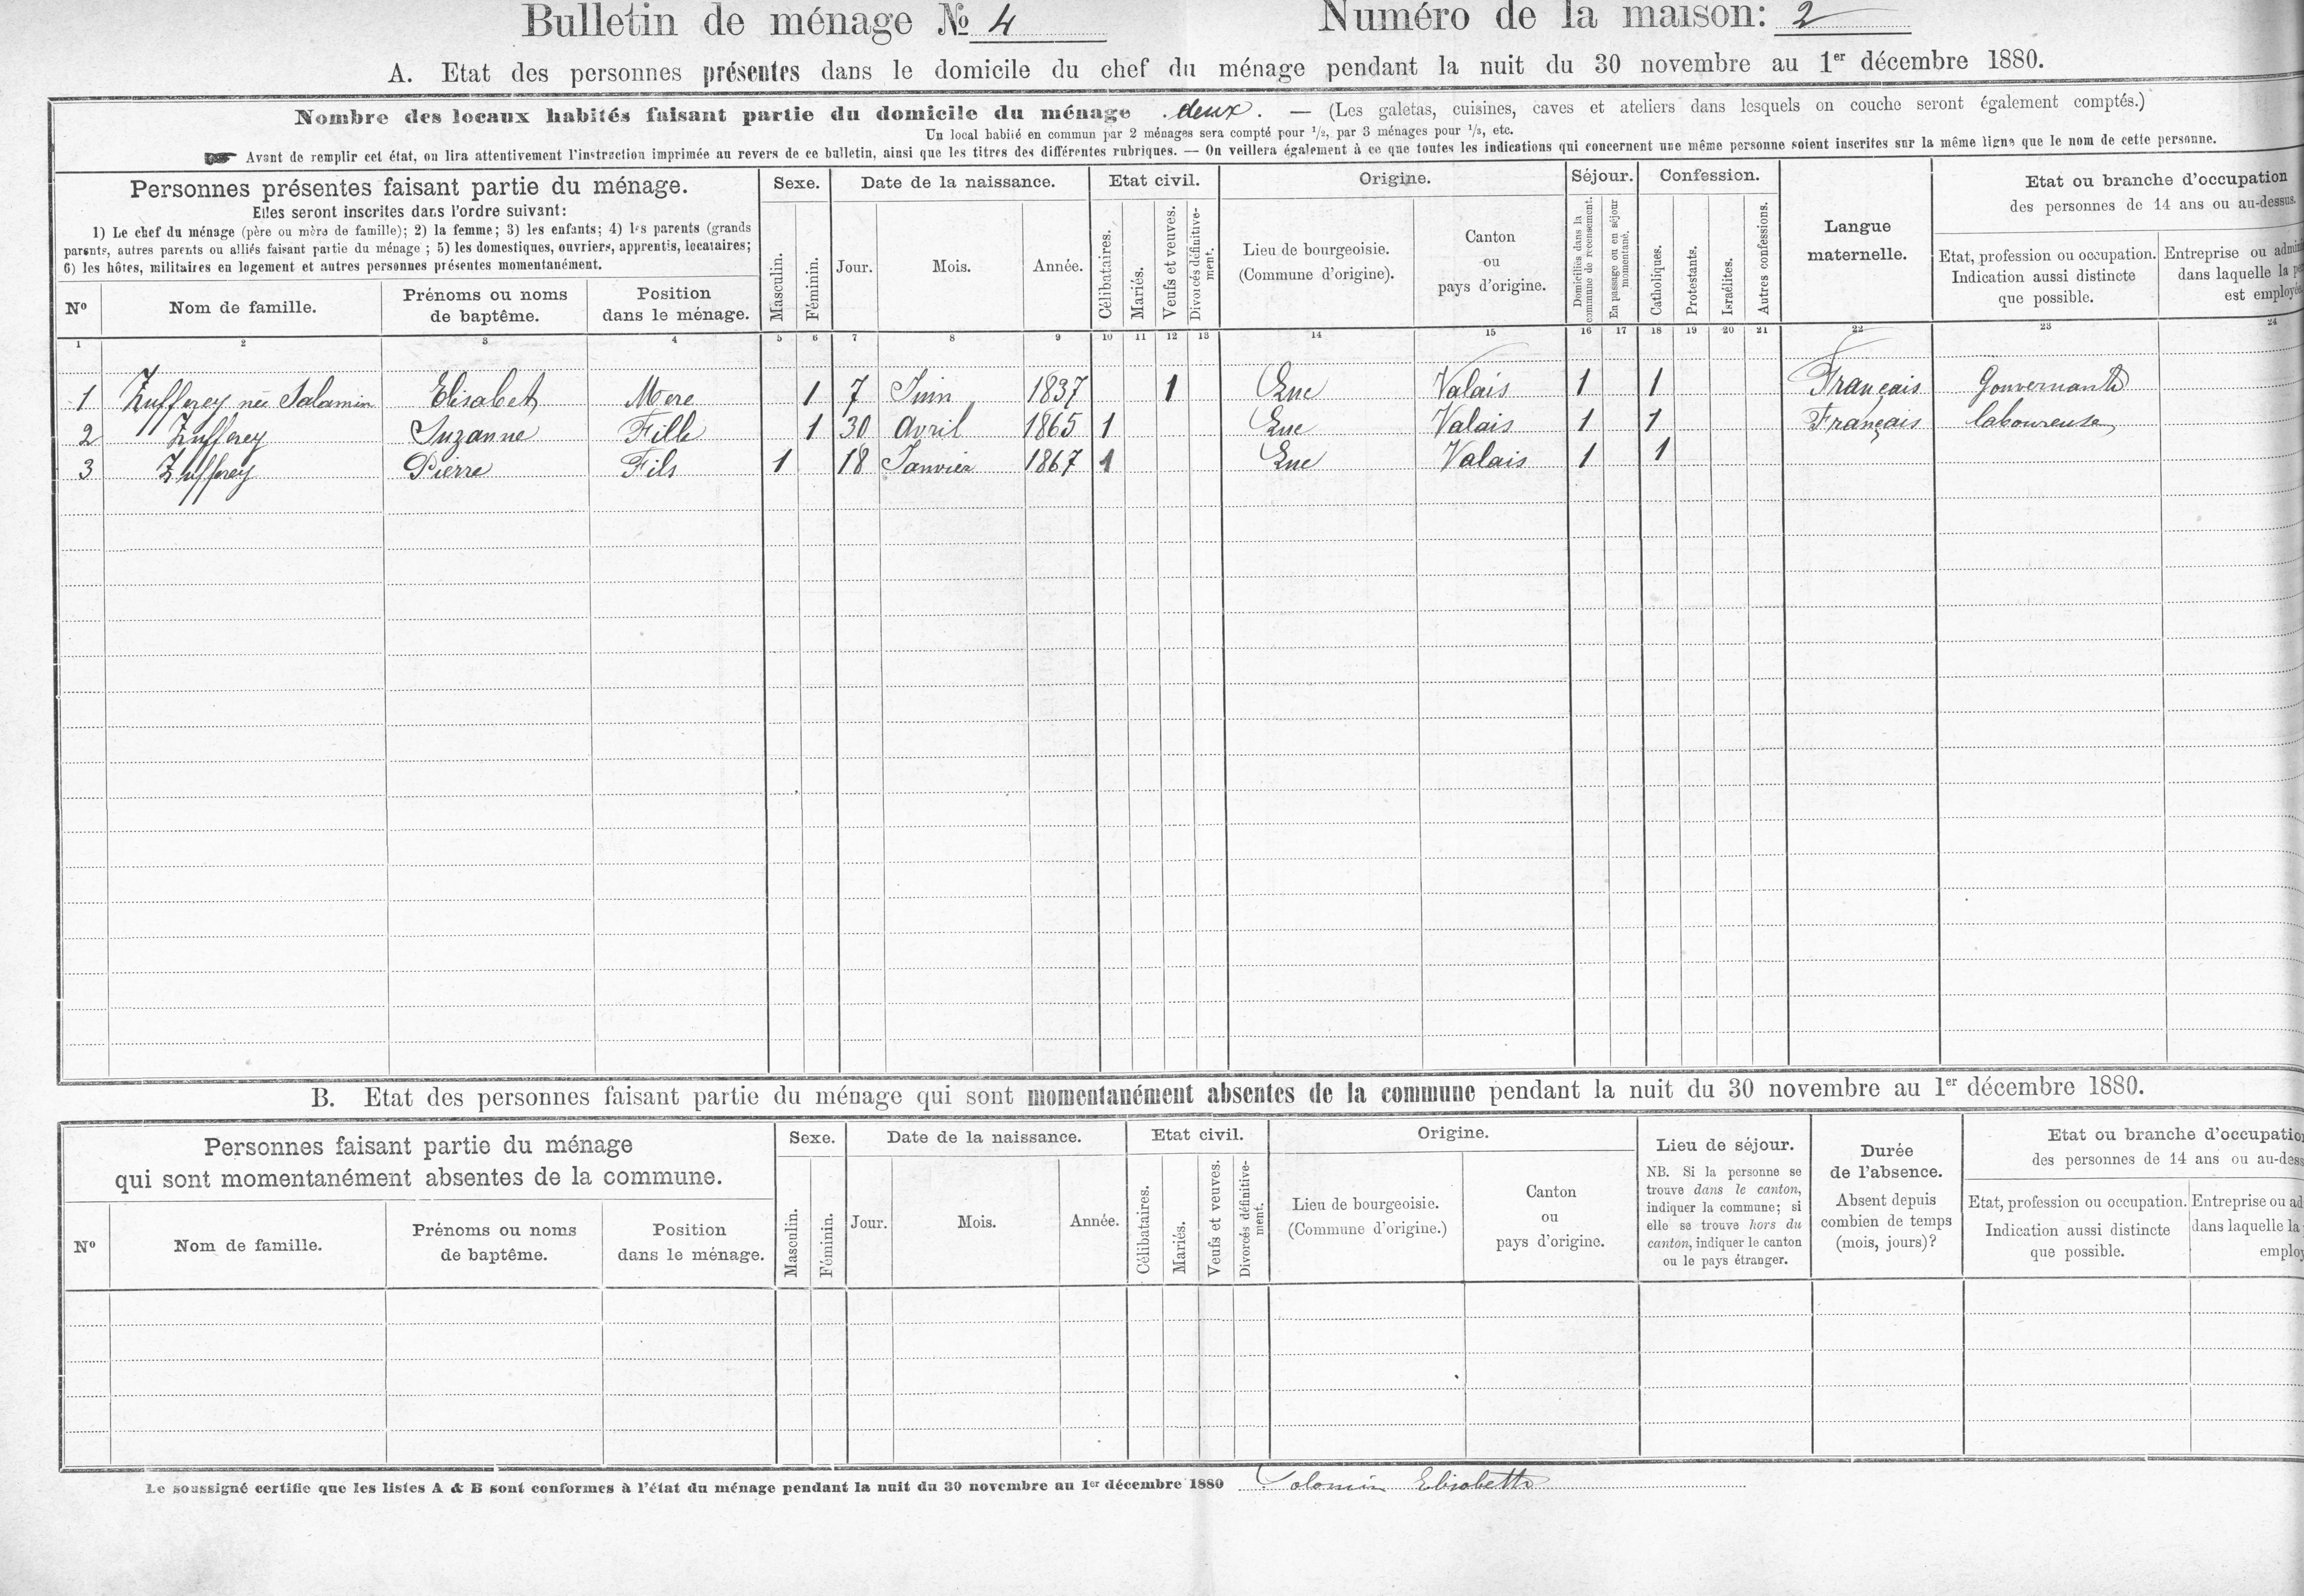 Bulletin de ménage № 4 Numéro de la maison: 2
A. Etat des personnes présentes dans le domicile du chef du ménage pendant la nuit du 30 novembre au 1er décembre 1880.
Nombre des locaux habités faisant partie du domicile du ménage deux. — (Les galetas, cuisines, caves et ateliers dans lesquels on couche seront également comptés.)
Un local habité en commun par 2 ménages sera compté pour 1/2, par 3 ménages pour 1/3, etc.
Avant de remplir cet état, on lira attentivement l'instruction imprimée au revers de ce bulletin, ainsi que les titres des différentes rubriques. — On veillera également à ce que toutes les indications qui concernent une même personne soient inscrites sur la même ligne que le nom de cette personne.
Personnes présentes faisant partie du ménage.
Elles seront inscrites dans l'ordre suivant:
1) Le chef du ménage (père ou mère de famille); 2) la femme; 3) les enfants; 4) les parents (grands
parents, autres parents ou alliés faisant partie du ménage; 5) les domestiques, ouvriers, apprentis, locataires;
6) les hôtes, militaires en logement et autres personnes présentes momentanément.
Nº
Nom de famille.
Prénoms ou noms
de baptême.
Position
dans le ménage.
Sexe.
Masculin.
Féminin.
Date de la naissance.
Jour.
Mois.
Année.
Etat civil.
Célibataires.
Mariés.
Veufs et veuves.
Divorcés définitive-
ment.
Origine.
Lieu de bourgeoisie.
(Commune d'origine).
Canton
ou
pays d'origine.
Séjour.
Domiciliés dans la
commune de recensement.
En passage ou en séjour
momentané.
Confession.
Catholiques.
Protestants.
Israélites.
Autres confessions.
Langue
maternelle.
Etat ou branche d'occupation
des personnes de 14 ans ou au-dessus.
Etat, profession ou occupation.
Indication aussi distincte
que possible.
Entreprise ou
dans laquelle la
est employée
1 2 3 4 5 6 7 8 9 10 11 12 13 14 15 16 17 18 19 20 21 22 23 24
1 Zufferey née Salamin Elisabet Mere 1 7 Juin 1837 1 Luc Valais 1 1 Français Gouvernante
2 Zufferey Suzanne Fille 1 30 Avril 1865 1 Luc Valais 1 1 Français laboureuse
3 Zufferey Pierre Fils 1 18 Janvier 1867 1 Luc Valais 1 1
B. Etat des personnes faisant partie du ménage qui sont momentanément absentes de la commune pendant la nuit du 30 novembre au 1er décembre 1880.
Personnes faisant partie du ménage
qui sont momentanément absentes de la commune.
Nº
Nom de famille.
Prénoms ou noms
de baptême.
Position
dans le ménage.
Sexe.
Masculin.
Féminin.
Date de la naissance.
Jour.
Mois.
Année.
Etat civil.
Célibataires.
Mariés.
Veufs et veuves.
Divorcés définitive-
ment.
Origine.
Lieu de bourgeoisie.
(Commune d'origine.)
Canton
ou
pays d'origine.
Lieu de séjour.
NB. Si la personne se
trouve dans le canton,
indiquer la commune; si
elle se trouve hors du
canton, indiquer le canton
ou le pays étranger.
Durée
de l'absence.
Absent depuis
combien de temps
(mois, jours)?
Etat ou branche d'occupation
des personnes de 14 ans ou au-dess
Etat, profession ou occupation.
Indication aussi distincte
que possible.
Entreprise ou ad
dans laquelle la
employ
Le soussigné certifie que les listes A & B sont conformes à l'état du ménage pendant la nuit du 30 novembre au 1er décembre 1880 Solomin Elisabetth